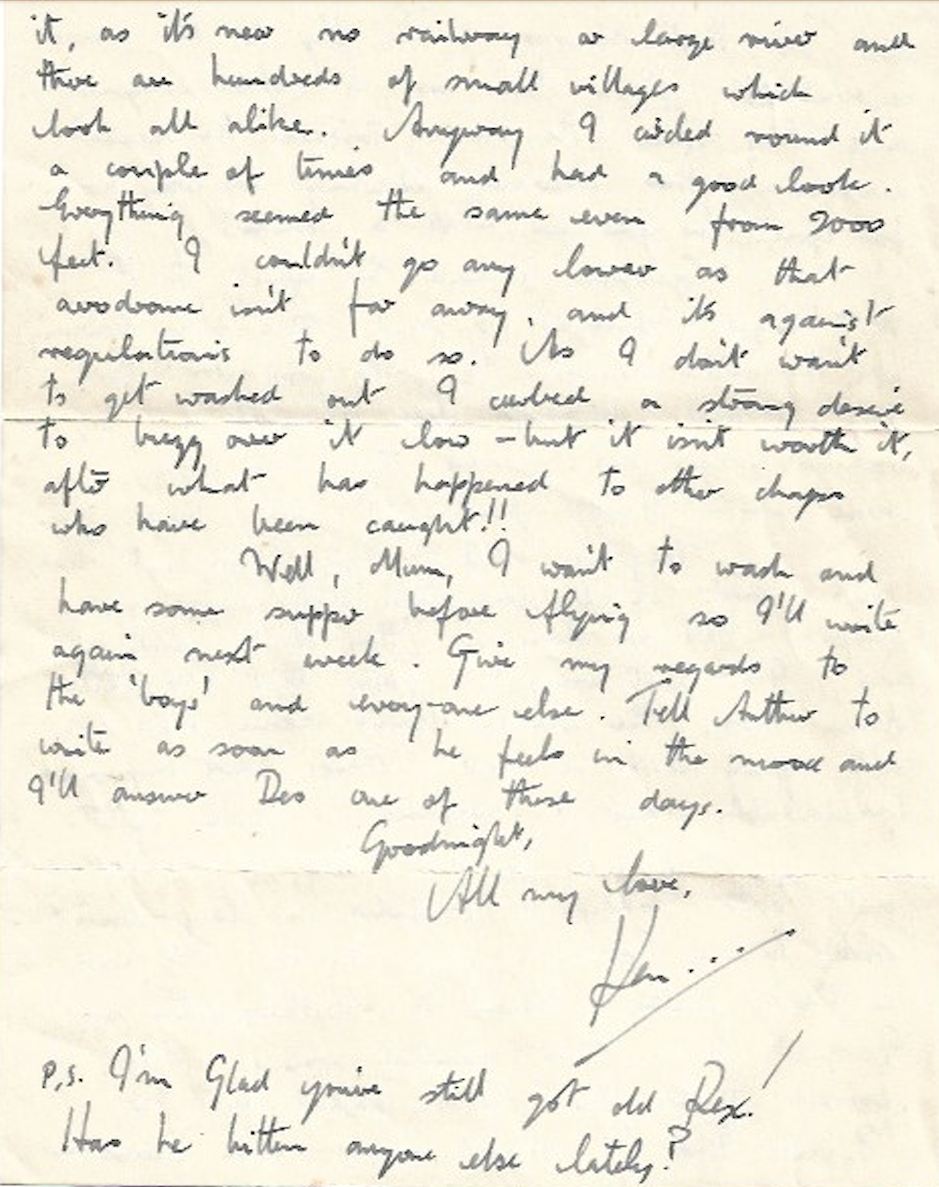 it, as it's near no railway or large river and
there are hundreds of small villages which
look all alike. Anyway I circled round it
a couple of times and had a good look.
Everything seemed the same even from 2000
feet. I couldn't go any lower as that
aerodrome isn't far away, and it's against
regulations to do so. As I don't want
to get washed out I curbed a strong desire
to buzz over it low - but it isn't worth it,
after what has happened to other chaps
who have been caught!!
Well, Mum, I want to wash and
have some supper before flying so I'll write
again next week. Give my regards to
the 'boys' and every-one else. Tell Arthur to
write as soon as he feels in the mood and
I'll answer Des one of these days.
Goodnight,
All my love,
Ken...
P.S. I'm Glad you've still got old Rex!
Has he bitten anyone else lately?